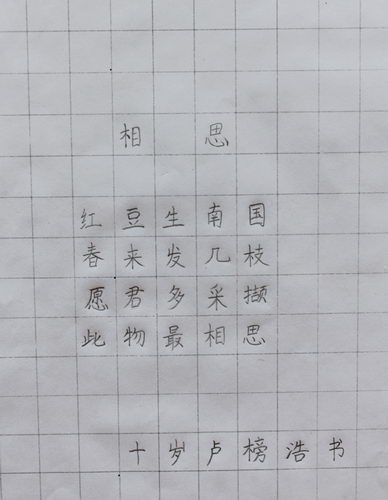 相思
红豆生南国
春来发几枝
愿君多采撷
此物最相思
十岁卢榜浩书